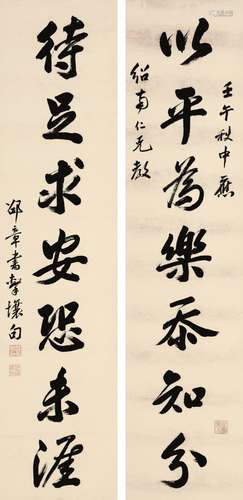 壬午秋中應
以平為樂忝知分
紹南仁兄教
待足求安恐未涯
邵章書擊壤句